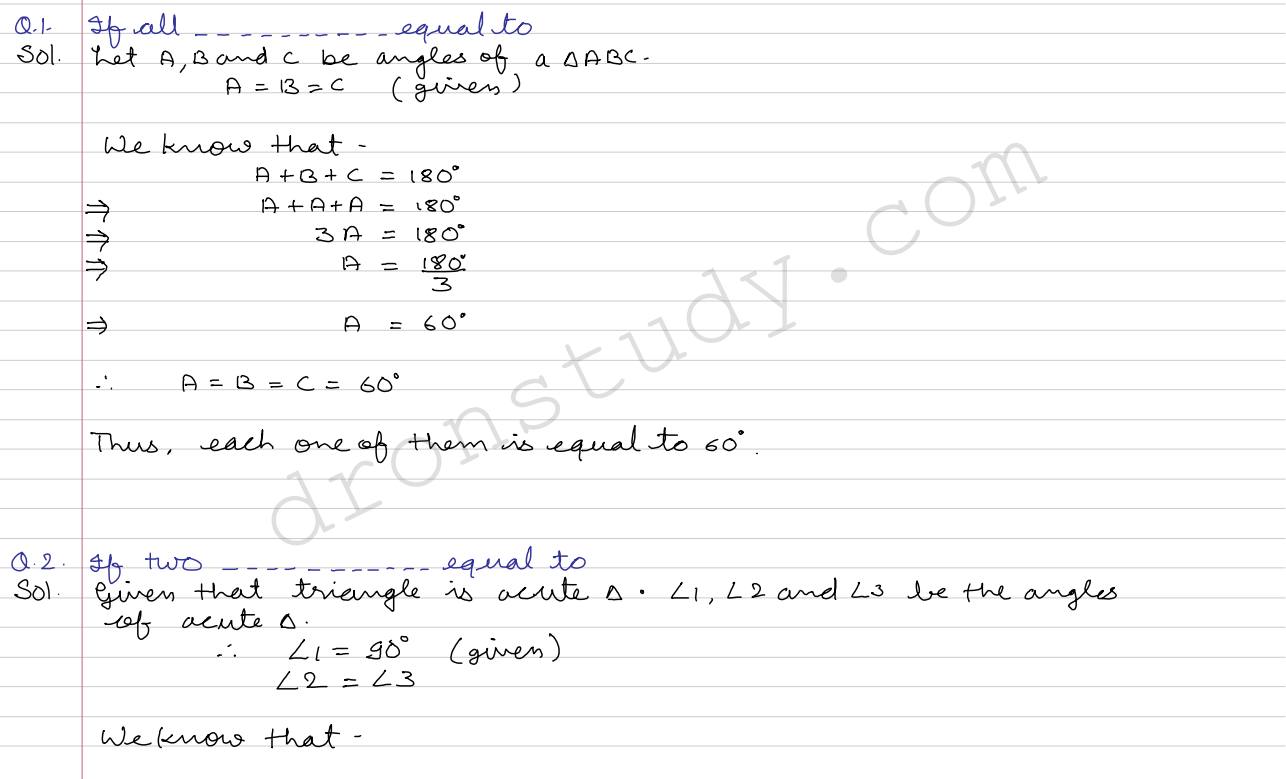 Q.1. If all _ _ _ _ _ _ _ _ _ _ equal to
Sol. Let A, B and C be angles of a ΔABC.
A = B = C (given)
We know that -
A + B + C = 180°
⇒ A + A + A = 180°
⇒ 3A = 180°
⇒ A = 180°/3
⇒ A = 60°
∴ A = B = C = 60°
Thus, each one of them is equal to 60°.
Q.2. If two _ _ _ _ _ _ _ _ _ _ _ _ equal to
Sol. Given that triangle is acute Δ. ∠1, ∠2 and ∠3 be the angles
of acute Δ.
∴ ∠1 = 90° (given)
∠2 = ∠3
We know that -
dronstudy.com